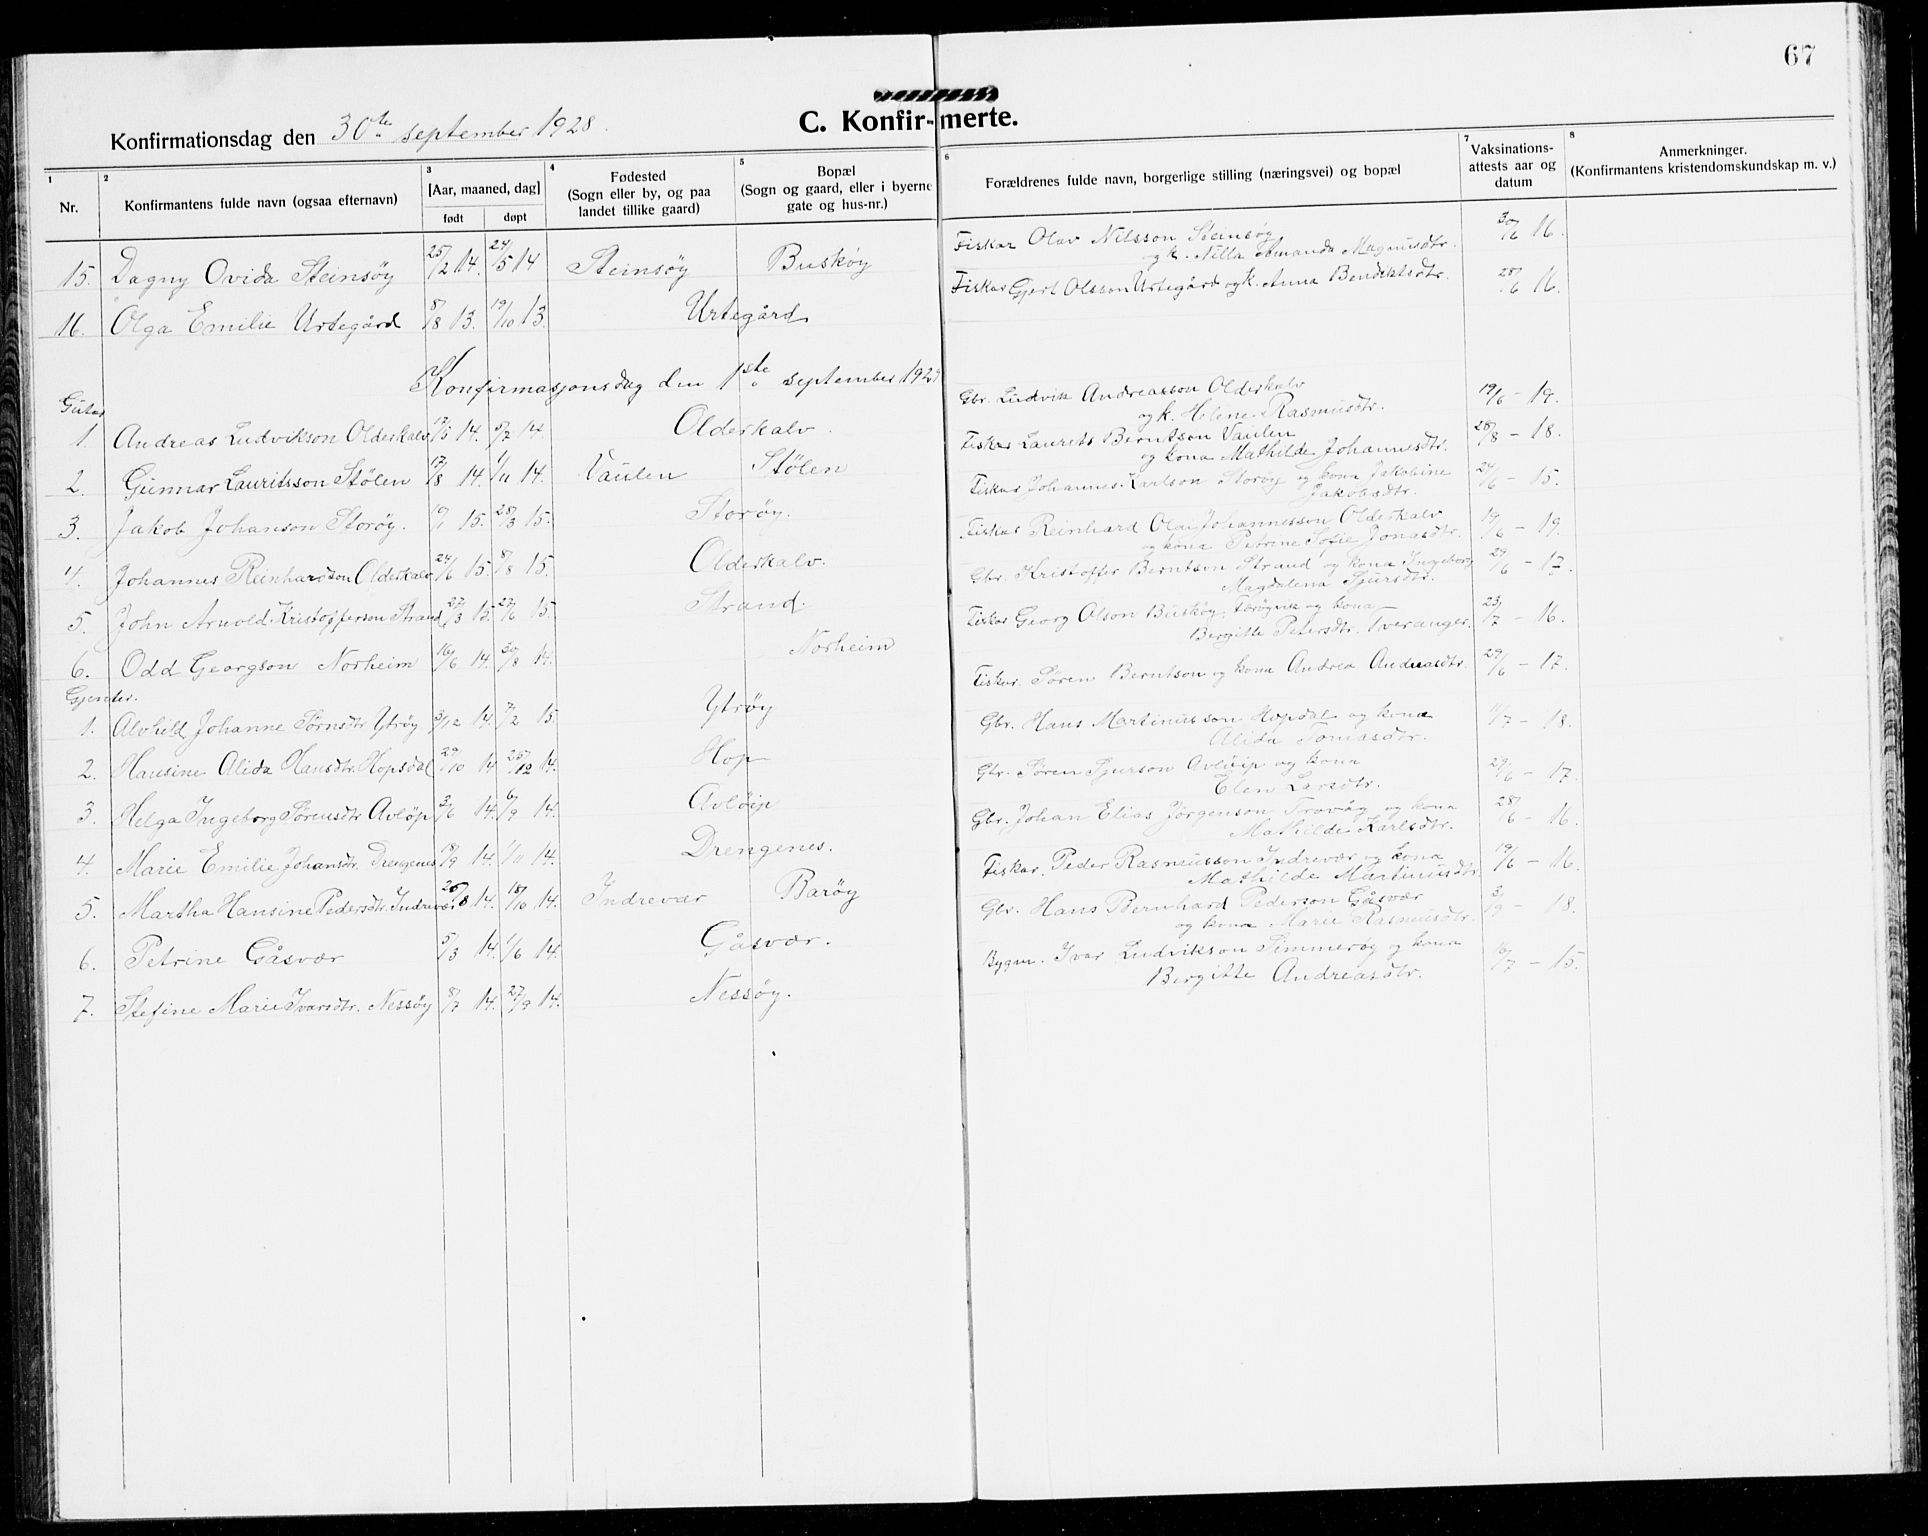 67
C. Konfir-merte.
Konfirmationsdag den 30te september 1928.
1 Nr.
2 Konfirmantens fulde navn (ogsaa efternavn)
3 [Aar, maaned, dag] født døpt
4 Fødested (Sogn eller by, og paa landet tillike gaard)
5 Bopæl (Sogn og gaard, eller i byerne gate og hus-nr.)
6 Forældrenes fulde navn, borgerlige stilling (næringsvei) og bopæl
7 Vaksinations-attests aar og datum
8 Anmerkninger. (Konfirmantens kristendomskundskap m. v.)
15. Dagny Ovida Steinsøy 25/2 14. 24/5 14 Steinsøy Buskøy Fiskar Olav Nilsson Steinsøy og k. Nilla Amanda Magnusdtr. 30/6 16.
16. Olga Emilie Urtegård 8/8 13. 19/10 13. Urtegård Fiskar Gjert Olsson Urtegård og k. Anna Bendiktsdtr. 28/6 16.
Konfirmasjonsdag den 1ste september 192
Gutar
1. Andreas Ludvikson Olderkalv 17/5 14. 5/7 14. Olderkalv. Gbr. Ludvik Andreasson Olderkalv og k. Helene Rasmusdtr. 19/6 - 19.
2. Gunnar Lauritsson Stølen 17/8 14. 1/11 14. Vaulen Stølen Fiskar Laurits Berntson Vaulen og kona Mathilde Johannesdtr. 28/8 - 18.
3. Jakob Johanson Storøy. 15. 28/3 15. Storøy. Fiskar Johannes Karlson Storøy og kona Jakobine Jakobsdtr. 24/6 - 15.
4. Johannes Reinhardson Olderkalv 24/6 15. 8/8 15. Olderkalv. Fiskar Reinhard Olai Johannesson Olderkalv og kona Petrine Sofie Jonasdtr. 19/6 - 19.
5. John Arnold Kristofferson Strand 27/3 15. 27/6 15. Strand. Gbr. Kristoffer Berntson Strand og kona Ingeborg Magdalena Sjursdtr. 29/6 - 17.
6. Odd Georgson Norheim 16/6 14. 30/8 14. Norheim Fiskar Georg Olson Buskøy, og kona Bergitte Petersdtr. 23/7 - 16.
Gjenter.
1. Alvhild Johanne Sørnsdtr Ytrøy 3/12 14. 7/2 15. Ytrøy Fiskar. Søren Berntson og kona Andrea Andreasdtr. 29/6 - 17.
2. Hansine Alida Hansdtr. Hopsdal 29/10 14 26/12 14. Hop Gbr. Hans Martinusson Hopdal og kona Alida Tomasdtr. 11/7 - 18.
3. Helga Ingeborg Sørensdtr Avløp 3/6 14. 6/9 14. Avløip Gbr. Søren Sjurson Avløip og kona Elen Larsdtr. 29/6 - 17.
4. Marie Emilie Johansdtr. Drengenes 14. 1/11 14. Drengenes. Gbr. Johan Elias Jørgenson Trovåg og kona Mathilde Karlsdtr. 28/6 - 16.
5. Martha Hansine Pedersdtr. Indrevær 14. 18/10 14. Indrevær Barøy Fiskar. Peder Rasmusson Indrevær og kona Mathilde Martinusdtr 19/6 - 16.
6. Petrine Gåsvær 5/3 14. 1/6 14. Gåsvær. Gbr. Hans Bernhard Pederson Gåsvær og kona Marie Rasmusdtr. 3/9 - 18.
7. Stefine Marie Ivarsdtr. Nessøy 8/7 14. 27/9 14. Nessøy. Bygm. Ivar Ludvikson Simmerøy og kona Bergitte Andreasdtr. 16/7 - 15.